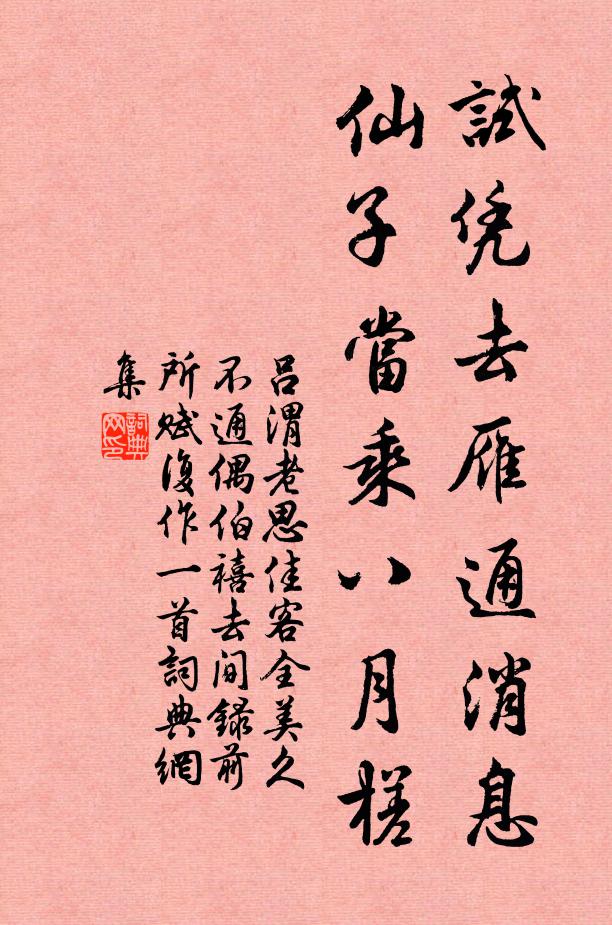 試凭去雁通消息
仙子當乘八月槎
吕渭老思佳客全美久
不通偶伯禧去间録前
所赋復作一首詞典網
集
詞典
网印